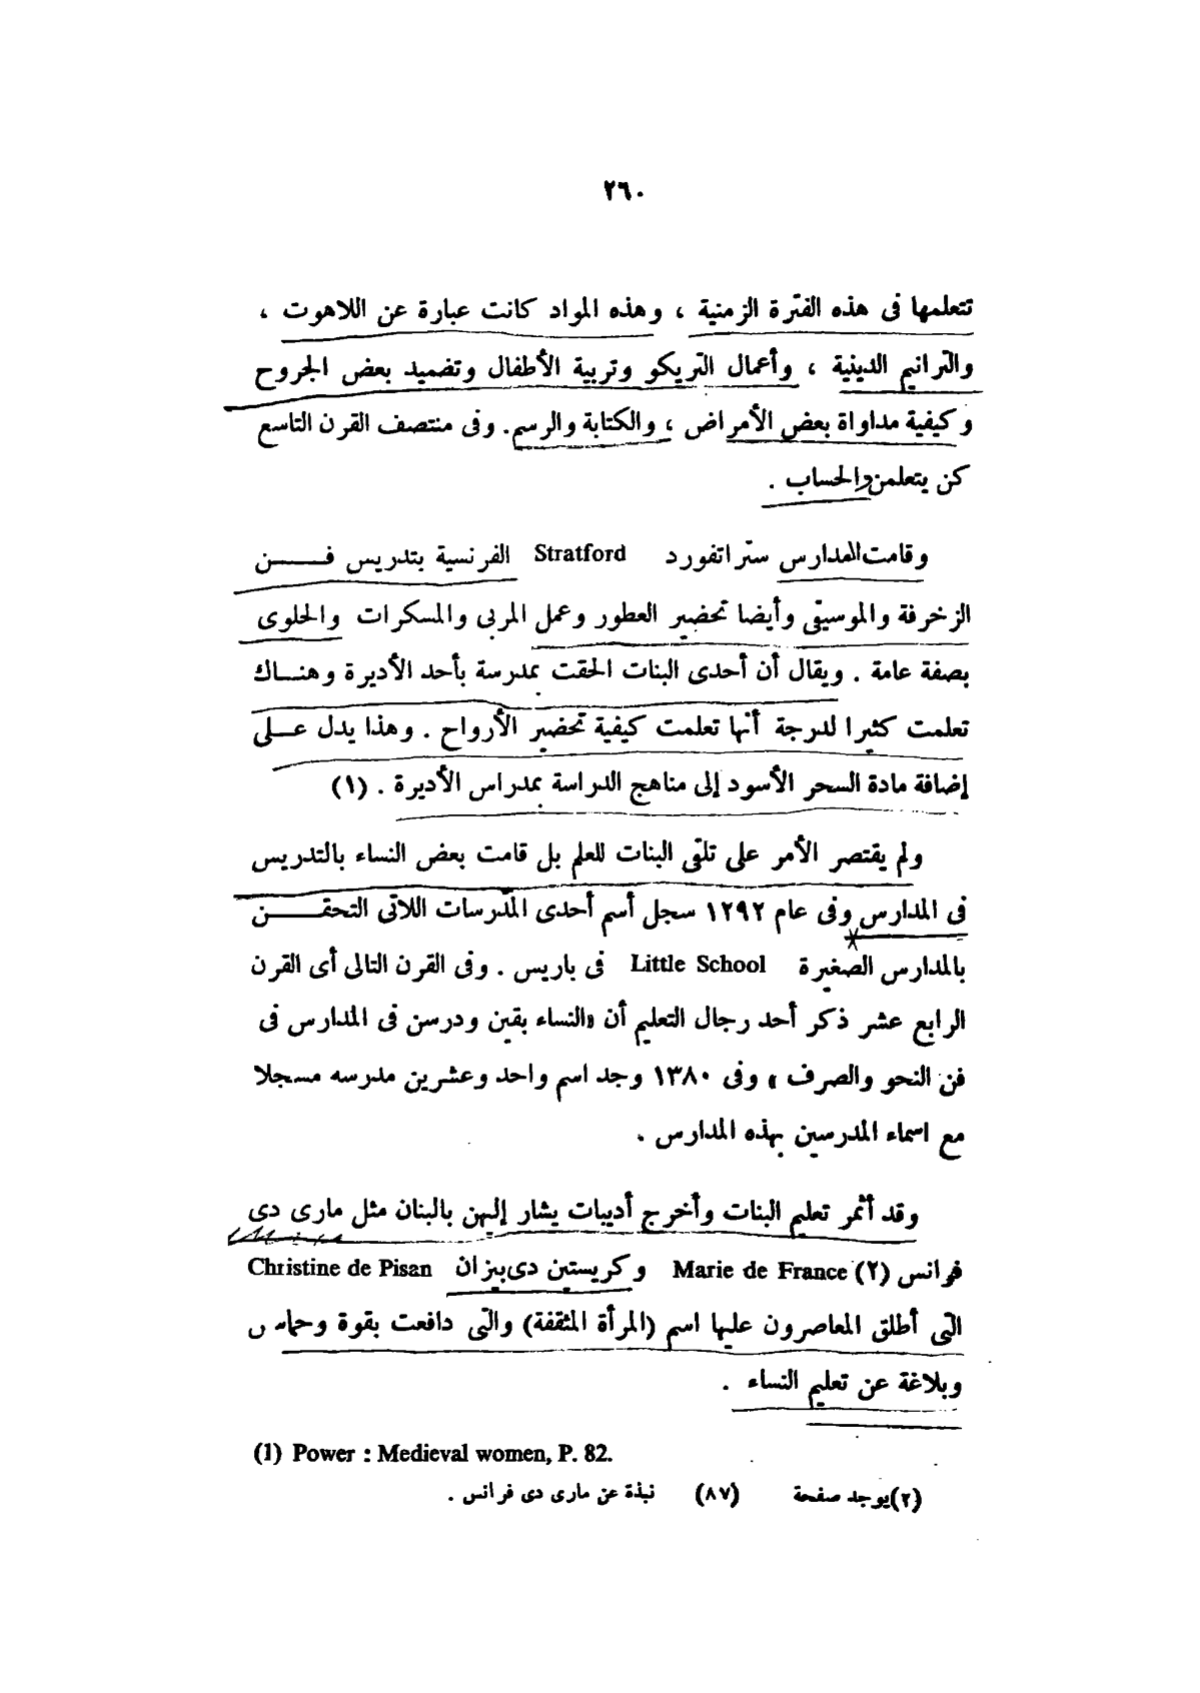 ٢٦٠
تتعلمها فى هذه الفترة الزمنية ، وهذه المواد كانت عبارة عن اللاهوت ،
والترانيم الدينية ، وأعمال التريكو وتربية الأطفال وتضميد بعض الجروح
وكيفية مداواة بعض الأمراض ، والكتابة والرسم. وفى منتصف القرن التاسع
كن يتعلمن والحساب .
وقامت المدارس ستراتفورد Stratford الفرنسية بتدريس فـــــن
الزخرفة والموسيقى وأيضا تحضير العطور وعمل المربى والمسكرات والحلوى
بصفة عامة . ويقال أن أحدى البنات الحقت بمدرسة بأحد الأديرة وهنــاك
تعلمت كثيرا لدرجة أنها تعلمت كيفية تحضير الأرواح . وهذا يدل عــلى
إضافة مادة السحر الأسود إلى مناهج الدراسة بمدراس الأديرة . (١)
ولم يقتصر الأمر على تلقى البنات للعلم بل قامت بعض النساء بالتدريس
فى المدارس وفى عام ١٢٩٢ سجل أسم أحدى المدرسات اللاتى التحقـــــن
بالمدارس الصغيرة Little School فى باريس . وفى القرن التالى أى القرن
الرابع عشر ذكر أحد رجال التعليم أن «النساء بقين ودرسن فى المدارس فى
فن النحو والصرف » وفى ١٣٨٠ وجد اسم واحد وعشرين مدرسه مسجلا
مع اسماء المدرسين بهذه المدارس .
وقد أثمر تعليم البنات وأخرج أديبات يشار إليهن بالبنان مثل مارى دى
فرانس (٢) Marie de France وكريستين دى بيزان Christine de Pisan
التى أطلق المعاصرون عليها اسم (المرأة المثقفة) والتى دافعت بقوة وحماس
وبلاغة عن تعليم النساء .
(1) Power : Medieval women, P. 82.
(٢) يوجد صفحة (٨٧) نبذة عن مارى دى فرانس .